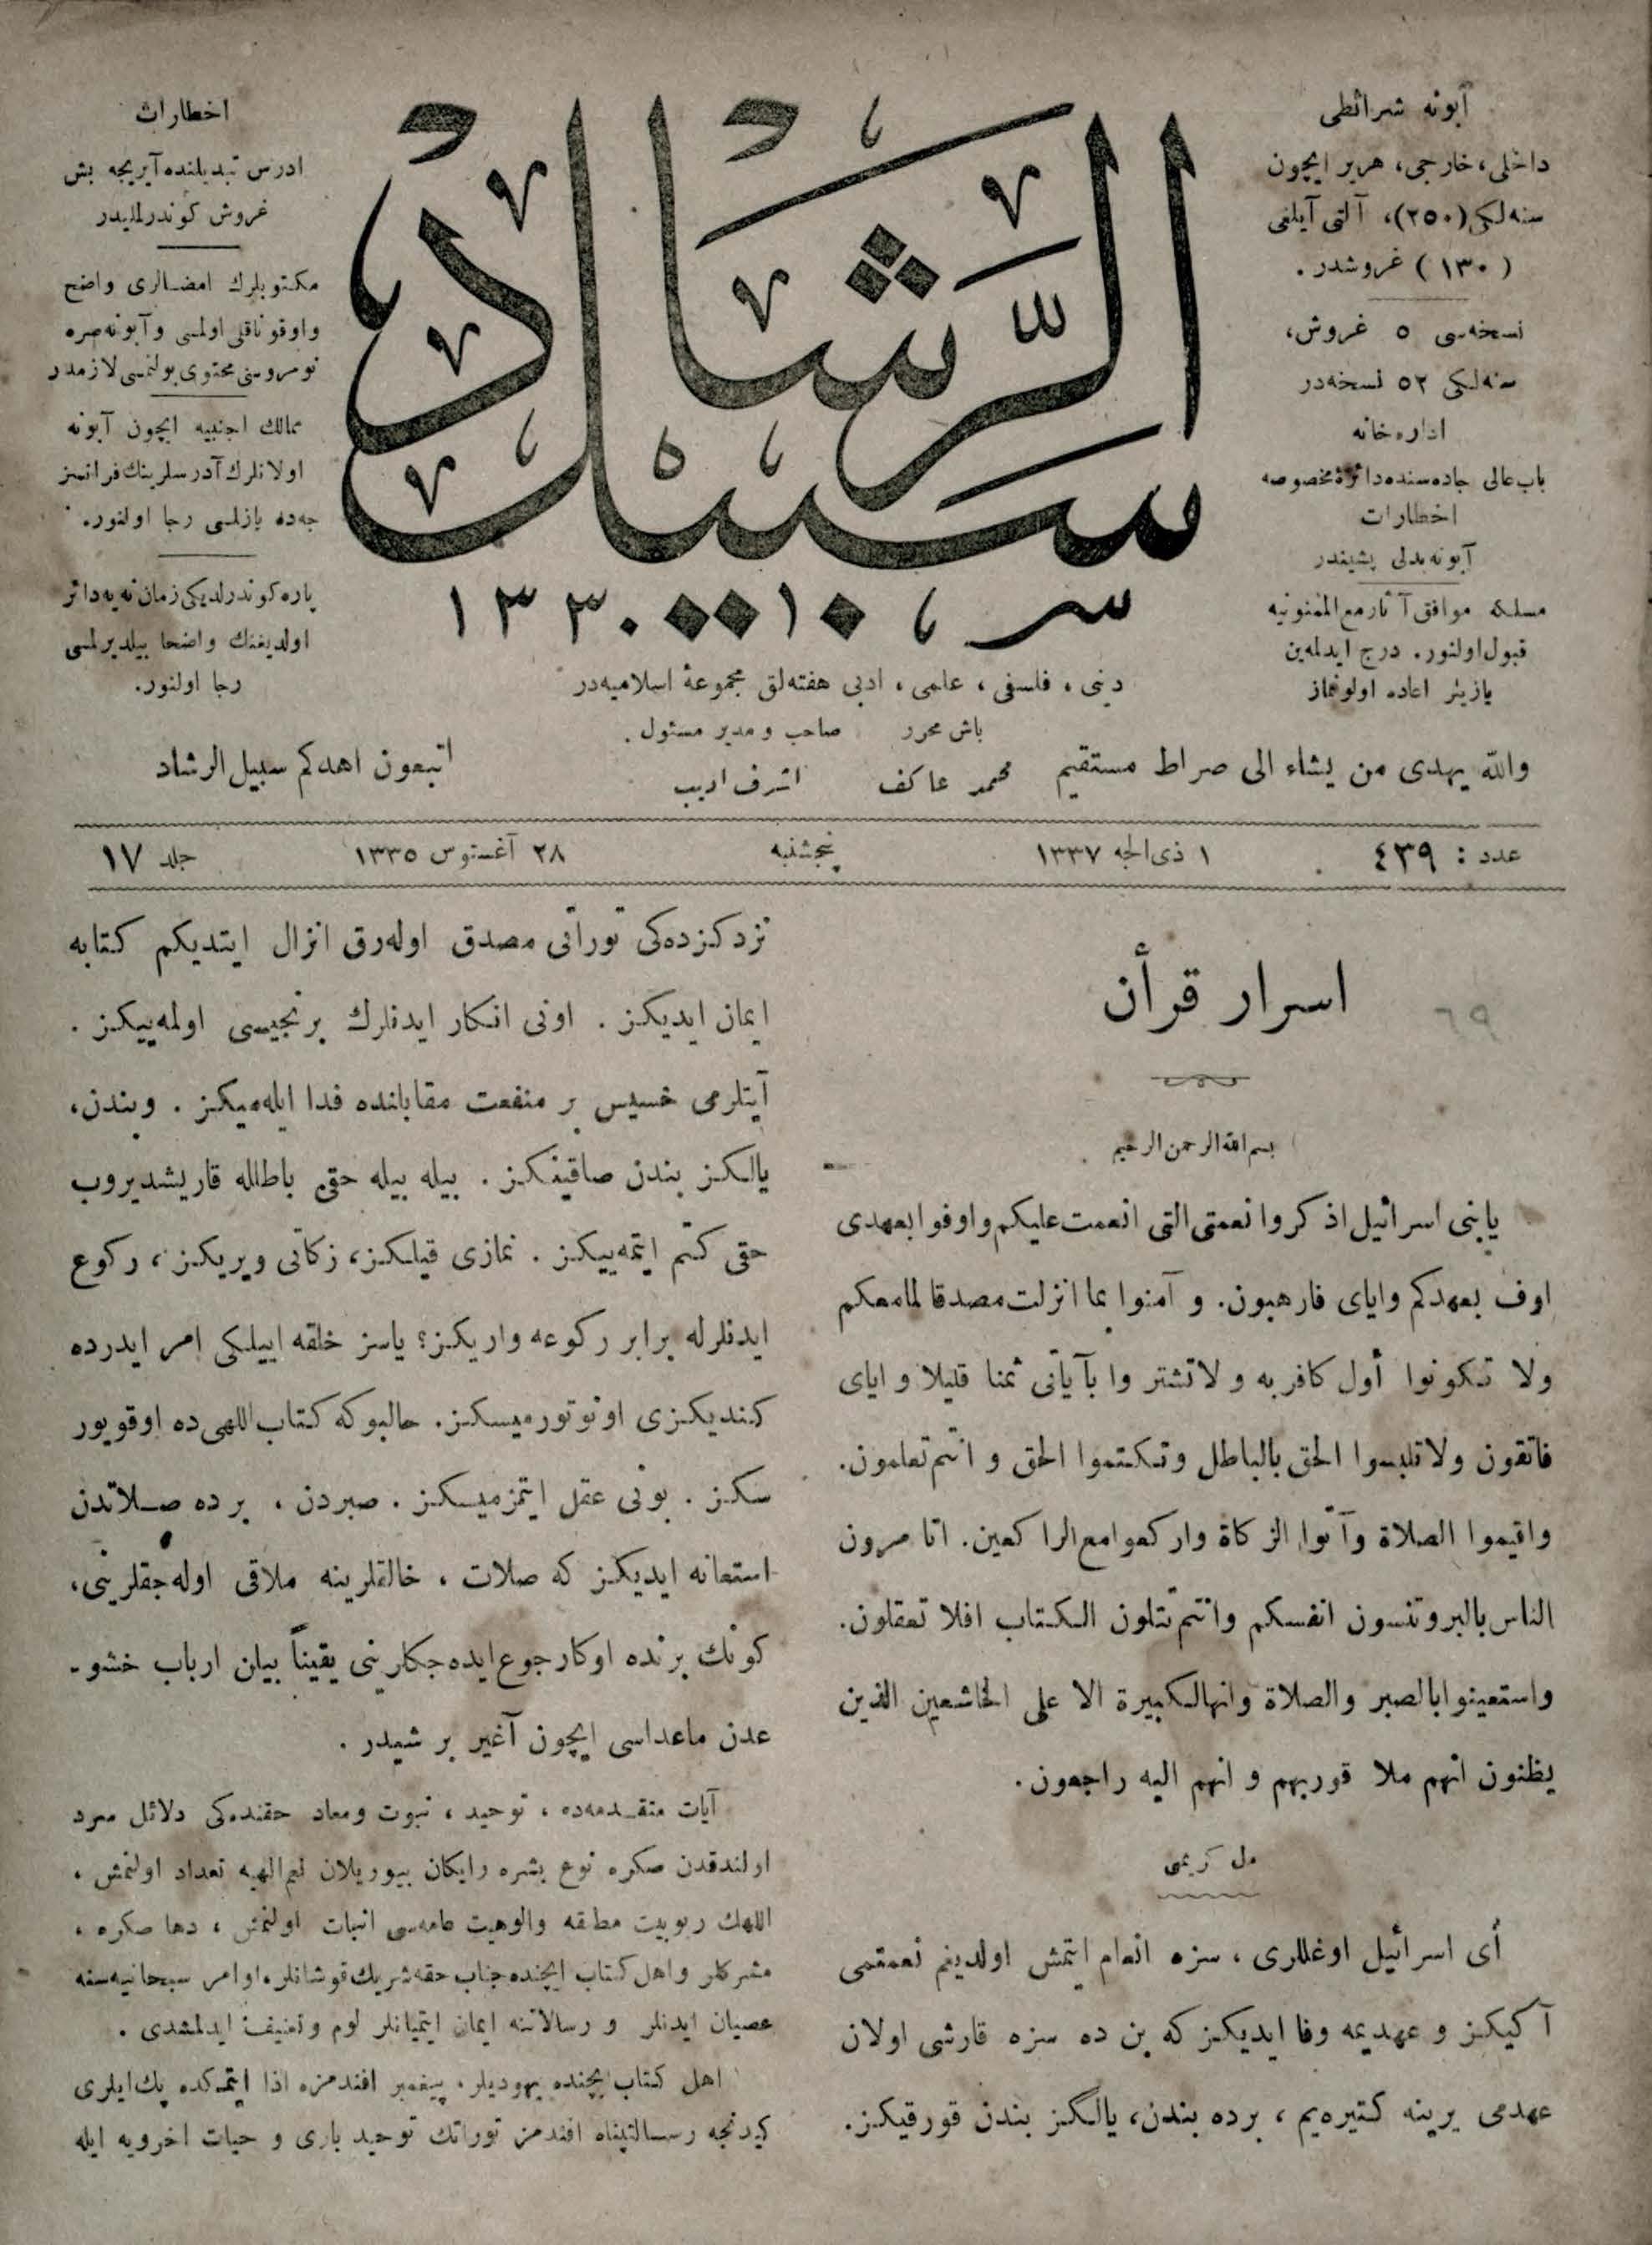 آبونه شرائطی
داخلی، خارجی، هر یر ایچون
سنه‌لکی (٢٥٠)، آلتی آیلغی
(١٣٠) غروشدر.
نسخه‌سی ٥ غروش،
سنه‌لکی ٥٢ نسخه‌در
اداره‌خانه
باب عالی جاده‌سنده دائرۀ مخصوصه
اخطارات
آبونه بدلی پشیندر
مسلکه موافق آثار مع الممنونیه
قبول اولنور. درج ایدلمه‌ین
یازیلر اعاده اولونماز
سبيل الرّشاد
سر ١٠ ١٣٣٠
دینی، فلسفی، علمی، ادبی هفته‌لق مجموعۀ اسلامیه‌در
باش محرر
محمد عاکف
صاحب و مدیر مسئول.
اشرف ادیب
اخطارات
ادرس تبدیلنده آیریجه بش
غروش کوندرلملیدر
مکتوبلرك امضالری واضح
واوقوناقلی اولمسی و آبونه صره
نومروسنی محتوی بولنمسی لازمدر
ممالك اجنبیه ایچون آبونه
اولانلرك آدرسلرینك فرانسز
جه‌ده یازلمسی رجا اولنور.
پاره کوندرلدیکی زمان نه‌یه دائر
اولدیغنك واضحا بیلدیرلمسی
رجا اولنور.
والله یهدی من یشاء الی صراط مستقیم
اتبعون اهدکم سبیل الرشاد
عدد : ٤٣٩ ١ ذی الحجه ١٣٣٧ پنجشنبه ٢٨ آغستوس ١٣٣٥ جلد ١٧
٦٩
اسرار قرأن
بسم الله الرحمن الرحیم
یابنی اسرائیل اذکروا نعمتی التی انعمت علیکم واوفوا بعهدی
اوف بعهدکم وایای فارهبون. و آمنوا بما انزلت مصدقا لما معکم
ولا تکونوا أول کافر به و لا تشتروا بآیاتی ثمنا قلیلا و ایای
فاتقون ولا تلبسوا الحق بالباطل وتکتموا الحق و انتم تعلمون.
واقیموا الصلاة وآتوا الزکاة وارکعوا مع الراکعین. اتا مرون
الناس بالبر وتنسون انفسکم وانتم تتلون الکتاب افلا تعقلون.
واستعینوا بالصبر والصلاة وانها لکبیرة الا علی الخاشعین الذین
یظنون انهم ملا قوربهم و انهم الیه راجعون.
مآل کریمی
أی اسرائیل اوغللری، سزه انعام ایتمش اولدیغم نعمتمی
آکیکز و عهدیمه وفا ایدیکز که بن ده سزه قارشی اولان
عهدمی یرینه کتیره‌یم، برده بندن، یالکز بندن قورقیکز.
نزدکزده‌کی توراتی مصدق اوله‌رق انزال ایتدیکم کتابه
ایمان ایدیکز. اونی انکار ایدنلرك برنجیسی اولمه‌ییکز.
آیتلرمی خسیس بر منفعت مقابلنده فدا ایله‌میکز. وبندن،
یالکز بندن صاقینکز. بیله بیله حقی باطلله قاریشدیروب
حقی کتم ایتمه‌ییکز. نمازی قیلکز، زکاتی ویریکز، رکوع
ایدنلرله برابر رکوعه واریکز؟ یاسز خلقه ایبلکی امر ایدرده
کندیکزی اونوتورمیسکز. حالبوکه کتاب اللهی ده اوقویور
سکز. بونی عقل ایتمزمیسکز. صبردن، بر ده صلاتدن
استعانه ایدیکز که صلات، خالقلرینه ملاقی اوله‌جقلرینی،
کونك برنده اوکا رجوع ایده‌جکلرینی یقیناً بیلن ارباب خشو-
عدن ماعداسی ایچون آغیر بر شیدر.
آیات متقدمه‌ده، توحید، نبوت ومعاد حقنده‌کی دلائل سرد
اولندقدن صکره نوع بشره رایکان بیوریلان نعم الهیه تعداد اولنمش،
اللهك ربوبیت مطلقه والوهیت عامه‌سی اثبات اولنمش، دها صکره،
مشرکلر واهل کتاب ایچنده جناب حقه شریك قوشانلر، اوامر سبحانیه‌سنه
عصیان ایدنلر و رسالاتنه ایمان ایتمیانلر لوم وتعنیف ایدلمشدی.
اهل کتاب ایچنده یهودیلر، پیغمبر افندمزه اذا ایتمکده پك ایلری
کیدنجه رسالتپناه افندمز توراتك توحید باری و حیات اخرویه ایله